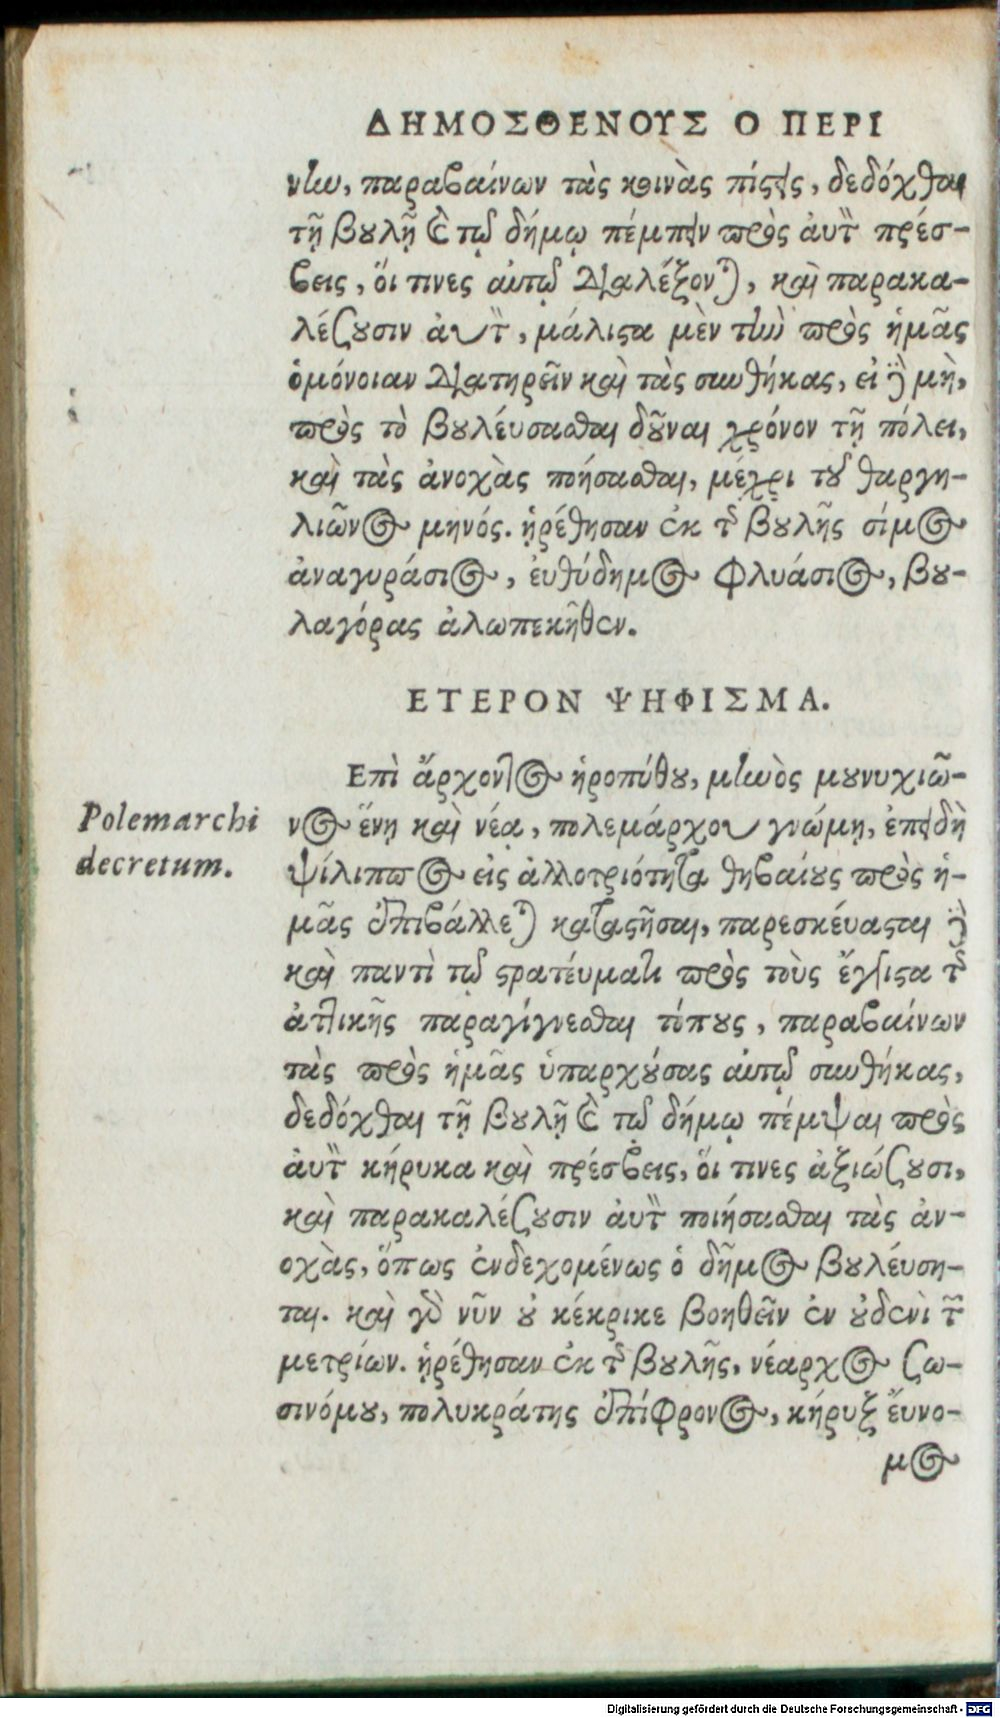 ΔΗΜΟΣΘΕΝΟΥΣ Ο ΠΕΡΙ
νην, παραβαίνων τὰς κοινὰς πίστεις, δεδόχθαι
τῇ βουλῇ καὶ τῷ δήμῳ πέμπειν πρὸς ἀυτὸν πρέσ-
βεις, ὅι τινες αὐτῷ διαλέξονται, καὶ παρακα-
λέσουσιν ἀυτὸν, μάλιστα μὲν τὴν πρὸς ἡμᾶς
ὁμόνοιαν διατηρεῖν καὶ τὰς συνθήκας, εἰ δὲ μὴ,
πρὸς τὸ βουλέυσασθαι δοῦναι χρόνον τῇ πόλει,
καὶ τὰς ἀνοχὰς ποιήσασθαι, μέχρι τοῦ θαργη-
λιῶνος μηνός. ᾑρέθησαν ἐκ τῆς βουλῆς σίμος
ἀναγυράσιος, ἐυθύδημος φλυάσιος, βου-
λαγόρας ἀλωπεκῆθεν.
ΕΤΕΡΟΝ ΨΗΦΙΣΜΑ.
Επὶ ἄρχοντος ἡροπύθου, μηνὸς μουνυχιῶ-
Polemarchi
νος ἕνῃ καὶ νέᾳ, πολεμάρχου γνώμῃ, ἐπειδὴ
decretum.
φίλιππος εἰς ἀλλοτριότητα θηβαίους πρὸς ἡ-
μᾶς ἐπιβάλλεται καταστῆσαι, παρεσκέυασται δὲ
καὶ παντὶ τῷ στρατέυματι πρὸς τοὺς ἔγγιστα τῆς
ἀττικῆς παραγίγνεσθαι τόπους, παραβαίνων
τὰς πρὸς ἡμᾶς ὑπαρχούσας αὐτῷ συνθήκας,
δεδόχθαι τῇ βουλῇ καὶ τῷ δήμῳ πέμψαι πρὸς
ἀυτὸν κήρυκα καὶ πρέσβεις, ὅι τινες ἀξιώσουσι,
καὶ παρακαλέσουσιν ἀυτὸν ποιήσασθαι τὰς ἀν-
οχὰς, ὅπως ἐνδεχομένως ὁ δῆμος βουλέυση-
ται. καὶ γὰρ νῦν οὐ κέκρικε βοηθεῖν ἐν οὐδενὶ τῶν
μετρίων. ᾑρέθησαν ἐκ τῆς βουλῆς, νέαρχος ζω-
σινόμου, πολυκράτης ἐπίφρονος, κήρυξ ἔυνο-
μος
Digitalisierung gefördert durch die Deutsche Forschungsgemeinschaft - DFG